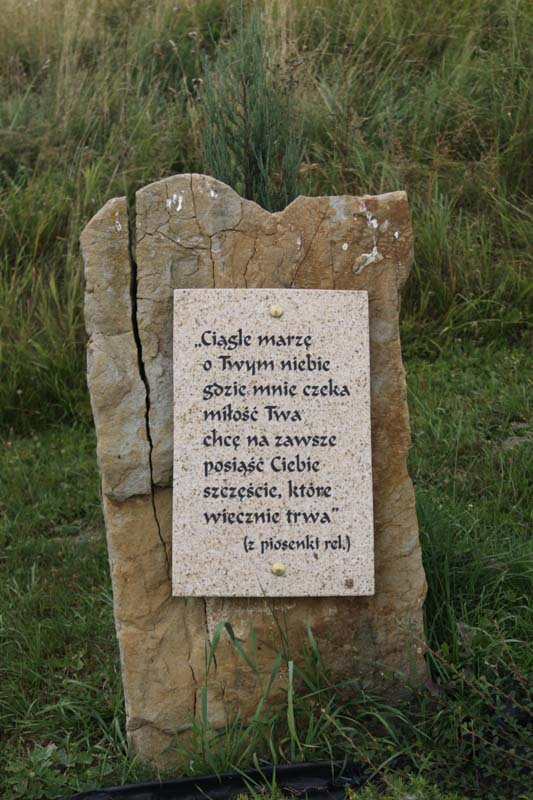 „Ciągle marzę
o Twym niebie
gdzie mnie czeka
miłość Twa
chcę na zawsze
posiąść Ciebie
szczęście, które
wiecznie trwa”
(z piosenki rel.)